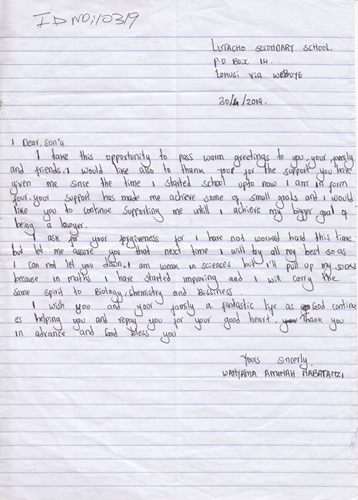 ID NO: 10319
LUTACHO SECONDARY SCHOOL
P.O BOX 14
LOKUSI VIA WEBUYE
30/4/2019.
Dear, Son'a
I take this opportunity to pass warm greetings to you, your family
and friends. I would like also to thank your for the support you have
given me since the time I started school upto now I am in form
four. your support has made me achieve some of small goals and I would
like you to continue supporting me until I achieve my bigger goal of
being a lawyer.
I ask for your forgiveness for I have not worked hard this time
but let me assure you that next time I will by all my best so as
I can not let you down. I am weak in sciences but I'll pull up my socks
because in maths I have started improving and I will carry the
same spirit to Biology, Chemistry and Business
I wish you and your family a fantastic life as God continue
es helping you and repay you for your good heart. thank you
in advance and God bless you
Yours sincerly.
NABATANZI